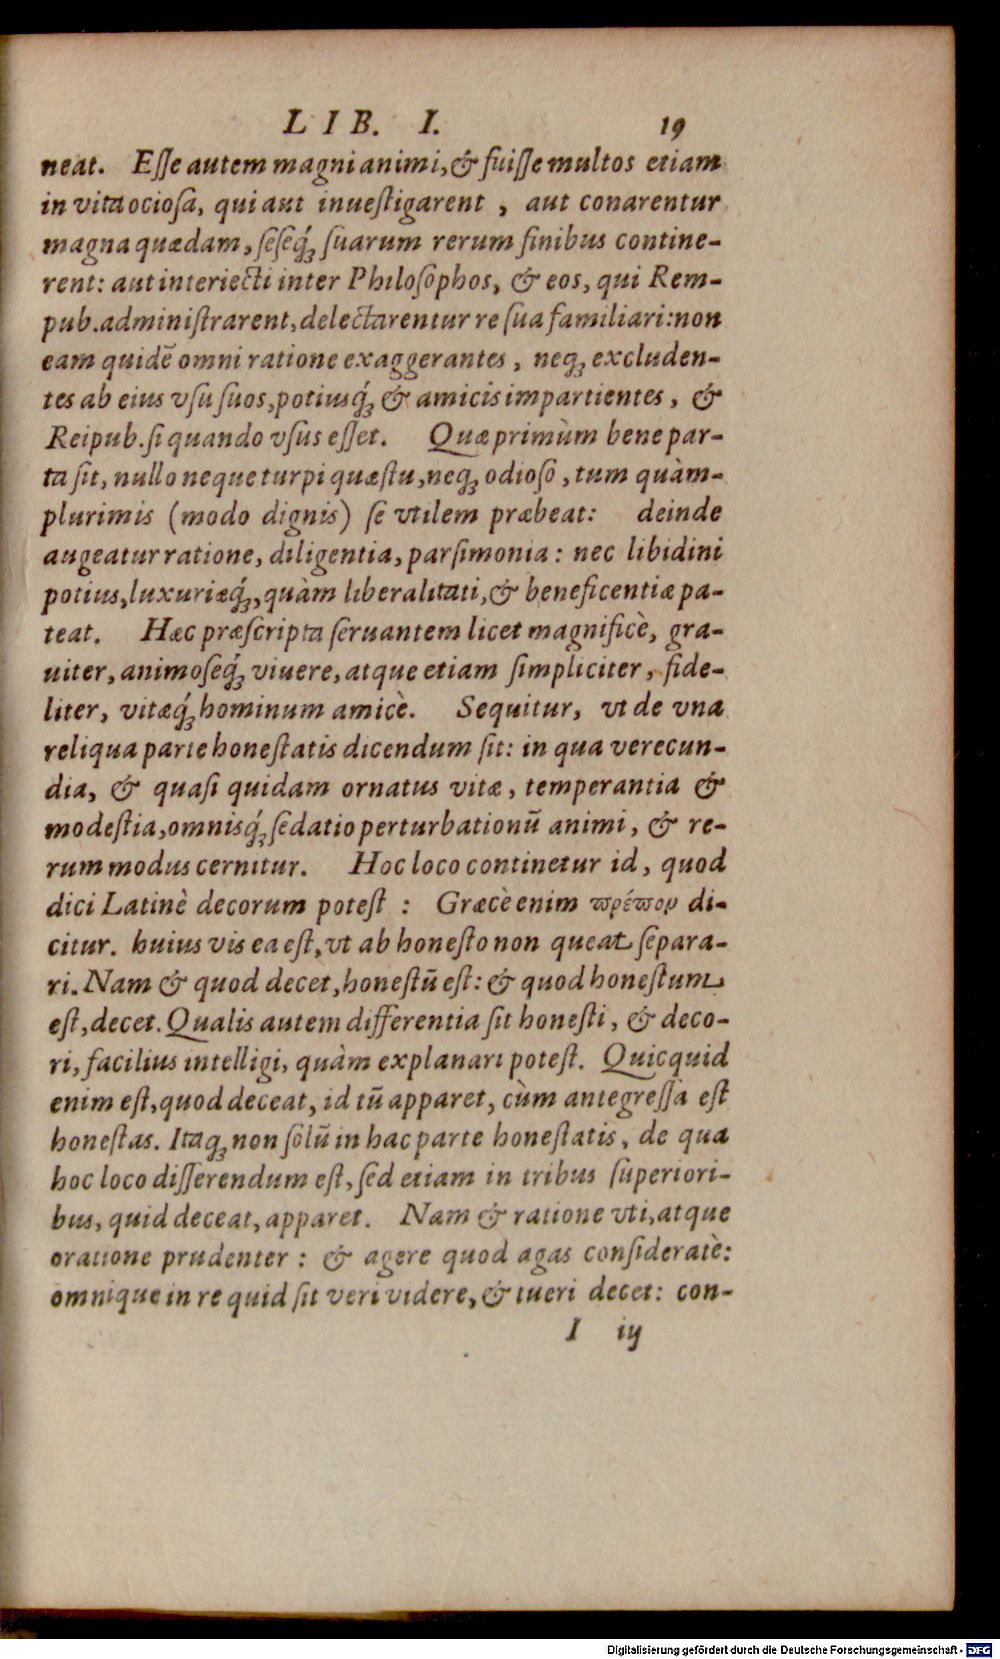 LIB. I. 19
neat. Eſſe autem magni animi, & fuiſſe multos etiam
in vita ocioſa, qui aut inueſtigarent , aut conarentur
magna quædam, ſeſeq́ꝫ ſuarum rerum finibus contine-
rent: aut interiecti inter Philoſophos, & eos, qui Rem-
pub. adminiſtrarent, delectarentur re ſua familiari: non
eam quidē omni ratione exaggerantes, neqꝫ excluden-
tes ab eius vſu ſuos, potiusq́ꝫ & amicis impartientes, &
Reipub. ſi quando vſus eſſet. Quæ primùm bene par-
ta ſit, nullo neque turpi quæſtu, neqꝫ odioſo, tum quàm-
plurimis (modo dignis) ſe vtilem præbeat: deinde
augeatur ratione, diligentia, parſimonia: nec libidini
potius, luxuriæq́ꝫ, quàm liberalitati, & beneficentiæ pa-
teat. Hæc præſcripta ſeruantem licet magnificè, gra-
uiter, animoſeq́ꝫ viuere, atque etiam ſimpliciter, fide-
liter, vitæq́ꝫ hominum amicè. Sequitur, vt de vna
reliqua parte honeſtatis dicendum ſit: in qua verecun-
dia, & quaſi quidam ornatus vitæ, temperantia &
modeſtia, omnisq́ꝫ ſedatio perturbationū animi, & re-
rum modus cernitur. Hoc loco continetur id, quod
dici Latinè decorum poteſt : Græcè enim πρέπον di-
citur. huius vis ea eſt, vt ab honeſto non queat ſepara-
ri. Nam & quod decet, honeſtū eſt: & quod honeſtum
eſt, decet. Qualis autem differentia ſit honeſti, & deco-
ri, facilius intelligi, quàm explanari poteſt. Quicquid
enim eſt, quod deceat, id tū apparet, cùm antegreſſa eſt
honeſtas. Itaqꝫ non ſolū in hac parte honeſtatis, de qua
hoc loco diſſerendum eſt, ſed etiam in tribus ſuperiori-
bus, quid deceat, apparet. Nam & ratione vti, atque
oratione prudenter : & agere quod agas conſideratè:
omnique in re quid ſit veri videre, & tueri decet: con-
I iij
Digitalisierung gefördert durch die Deutsche Forschungsgemeinschaft - DFG